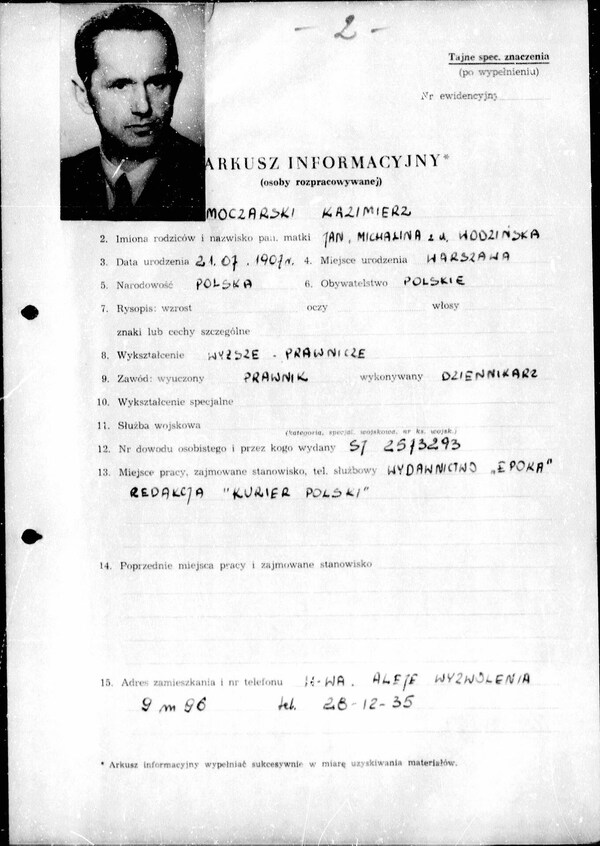 - 2 -
Tajne spec. znaczenia
(po wypełnieniu)
Nr ewidencyjny
ARKUSZ INFORMACYJNY*
(osoby rozpracowywanej)
MOCZARSKI KAZIMIERZ
2. Imiona rodziców i nazwisko pan. matki JAN, MICHALINA z d. WODZIŃSKA
3. Data urodzenia 21.07.1907 r. 4. Miejsce urodzenia WARSZAWA
5. Narodowość POLSKA 6. Obywatelstwo POLSKIE
7. Rysopis: wzrost oczy włosy
znaki lub cechy szczególne
8. Wykształcenie WYŻSZE - PRAWNICZE
9. Zawód: wyuczony PRAWNIK wykonywany DZIENNIKARZ
10. Wykształcenie specjalne
11. Służba wojskowa
(kategoria, specjal. wojskowa, nr ks. wojsk.)
12. Nr dowodu osobistego i przez kogo wydany ST 25/3293
13. Miejsce pracy, zajmowane stanowisko, tel. służbowy WYDAWNICTWO „EPOKA"
REDAKCJA "KURIER POLSKI"
14. Poprzednie miejsca pracy i zajmowane stanowisko
15. Adres zamieszkania i nr telefonu W-WA. ALEJE WYZWOLENIA
9 m 96 tel. 28-12-35
* Arkusz informacyjny wypełniać sukcesywnie w miarę uzyskiwania materiałów.